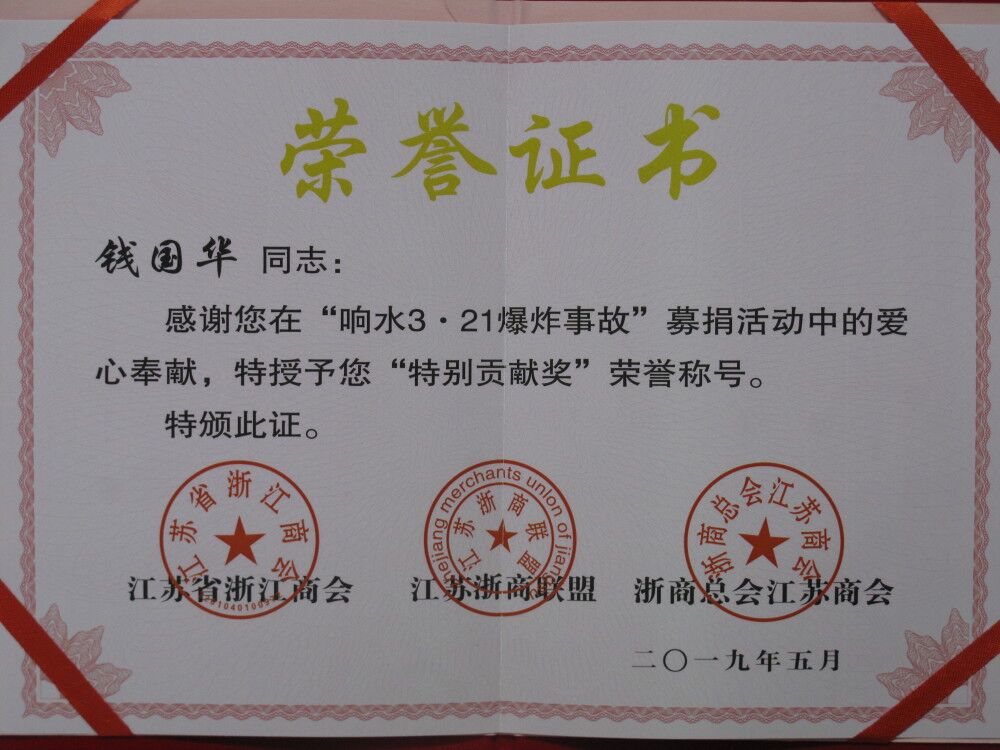 荣誉证书
钱国华 同志：
感谢您在“响水3·21爆炸事故”募捐活动中的爱
心奉献，特授予您“特别贡献奖”荣誉称号。
特颁此证。
江苏省浙江商会
江苏浙商联盟
浙商总会江苏商会
merchants union of
江苏省浙江商会
江苏浙商联盟
浙商总会江苏商会
二〇一九年五月